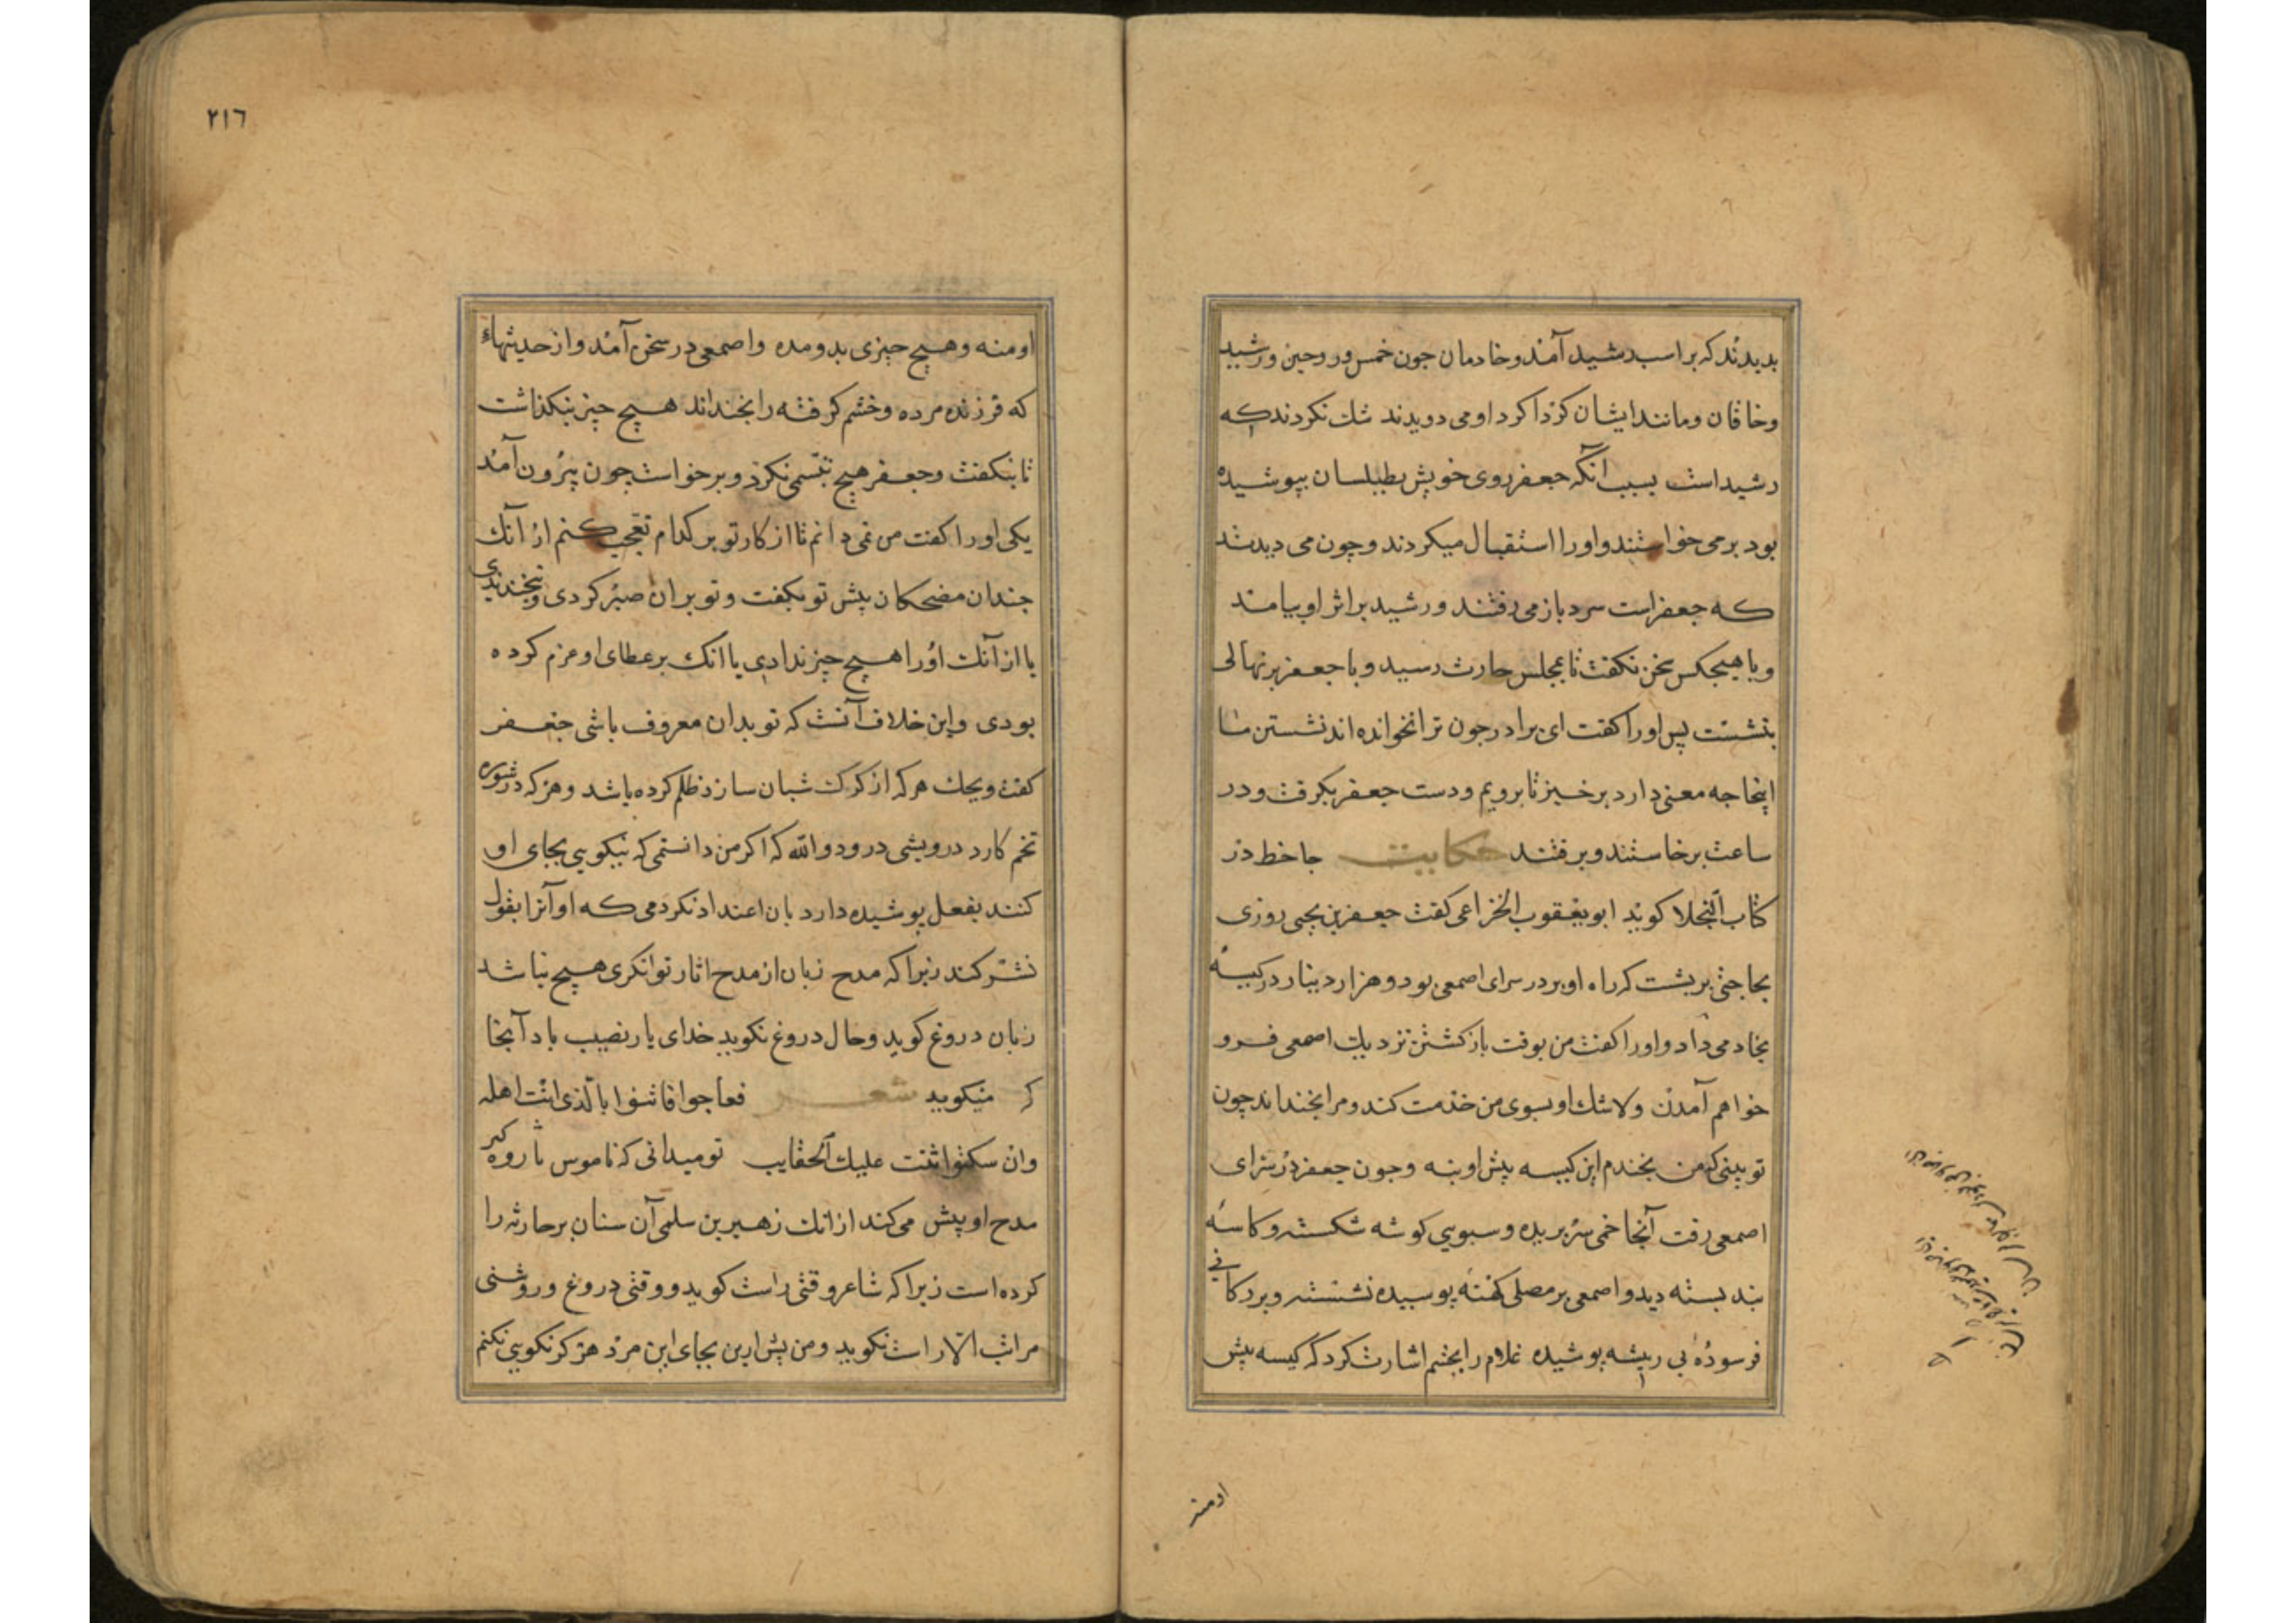 بدیدند که بر اسب رشید آمد و خادمان جون خمس ور و حین و رشید
وخاقان و مانند ایشان کرداکرد او می دویدند شك نکردند که
رشیداست بسبب انکه جعفر روی خویش بطیلسان بپوشیده
بود برمی خواستند و اورا استقبال میکردند و چون می دیدند
که جعفراست سرد باز می رفتند و رشید براثر او بیامد
و با هیجکس سخن نکفت تا بمجلس حارث رسید و با جعفر برنهالی
بنشست پس اورا کفت ای برادر جون ترا نخوانده اند نشستن ما
اینجا جه معنی دارد برخیز تا برویم و دست جعفر بکرفت و در
ساعت برخاستند و برفتند حکایت جاحظ در
کتاب البخلا کوید ابو یعقوب الخزاعی کفت جعفر بن یحیی روزی
بحاجتی برنشست که راه او بر در سرای اصمعی بود و هزار دینار در کیسۀ
بخادمی داد و اورا کفت من بوقت بازکشتن نزدیك اصمعی فرو
خواهم آمدن ولاشك او بسوی من خدمت کند و مرا بخنداند چون
تو بینی که من بخندم این کیسه پیش او بنه وجون جعفر در سرای
اصمعی رفت آنجا خمی سر بریده و سبویی کوشه شکسته و کاسۀ
بند بسته دید و اصمعی بر مصلی کهنه پوسیده نشسته و برد کانی
فرسوده بی ریشه پوشیده غلام را بچشم اشارت کرد که کیسه پیش
او منه
٢١٦
او منه و هیچ چیزی بدو مده واصمعی در سخن آمد و از حدیثهاء
که فرزند مرده و خشم کرفته را بخنداند هیچ چیز بنکذاشت
تا بنکفت وجعفر هیچ تبسمی نکرد و برخواست چون بیرون آمد
یکی اورا کفت من نمی دانم تا از کار تو بر کدام تعجب کنم از آنك
جندان مضحکان پیش تو بکفت و تو بران صبر کردی و نخندیدی
یا از آنك اورا هیچ چیز ندادی یا انك بر عطای او عزم کرده
بودی و این خلاف آنست که تو بدان معروف باشی جعفر
کفت ویحك هرکه از کرك شبان سازد ظلم کرده باشد و هرکه در شوره
تخم کارد درویشی درود والله که اکر من دانستمی که نیکویی بجای او
کنند بفعل پوشیده دارد بان اعتداد نکردمی که او آنرا بقول
نشر کند زیرا که مدح زبان از مدح اثار توانکری هیچ نباشد
زبان دروغ کوید وحال دروغ نکوید خدای یار نصیب باد آنجا
که میکوید شعر فعاجوا فاثنوا بالذی انت اهله
وان سکتوا اثنت علیك الحقایب تو میدانی که ناموس تاروه کبر
مدح او پیش می کند از انك زهیر بن سلمی آن سنان بر حارثه را
کرده است زیرا که شاعر وقتی راست کوید و وقتی دروغ و روشنی
مراتب الا راست نکوید و من پیش ازین بجای این مرد هرکز نکویی نکنم